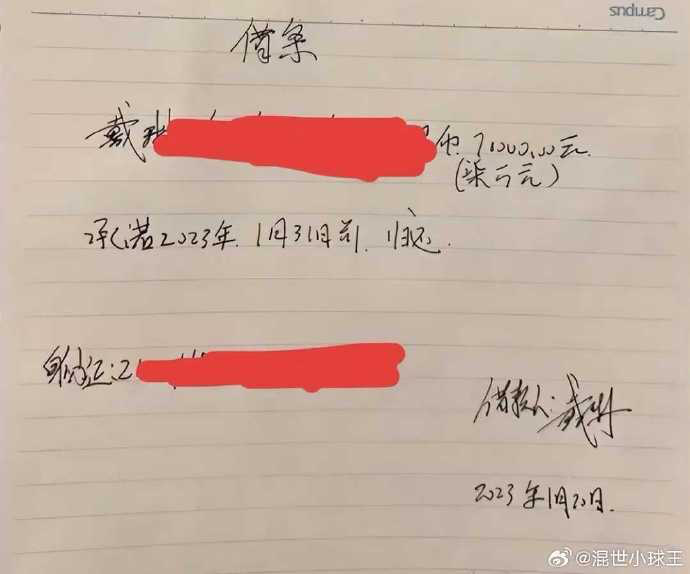 Campus
借条
戴琳 币 70000.00元
(柒万元)
承诺2023年1月31日前,归还.
身份证:2
借款人:戴琳
2023年1月20日.
@混世小球王